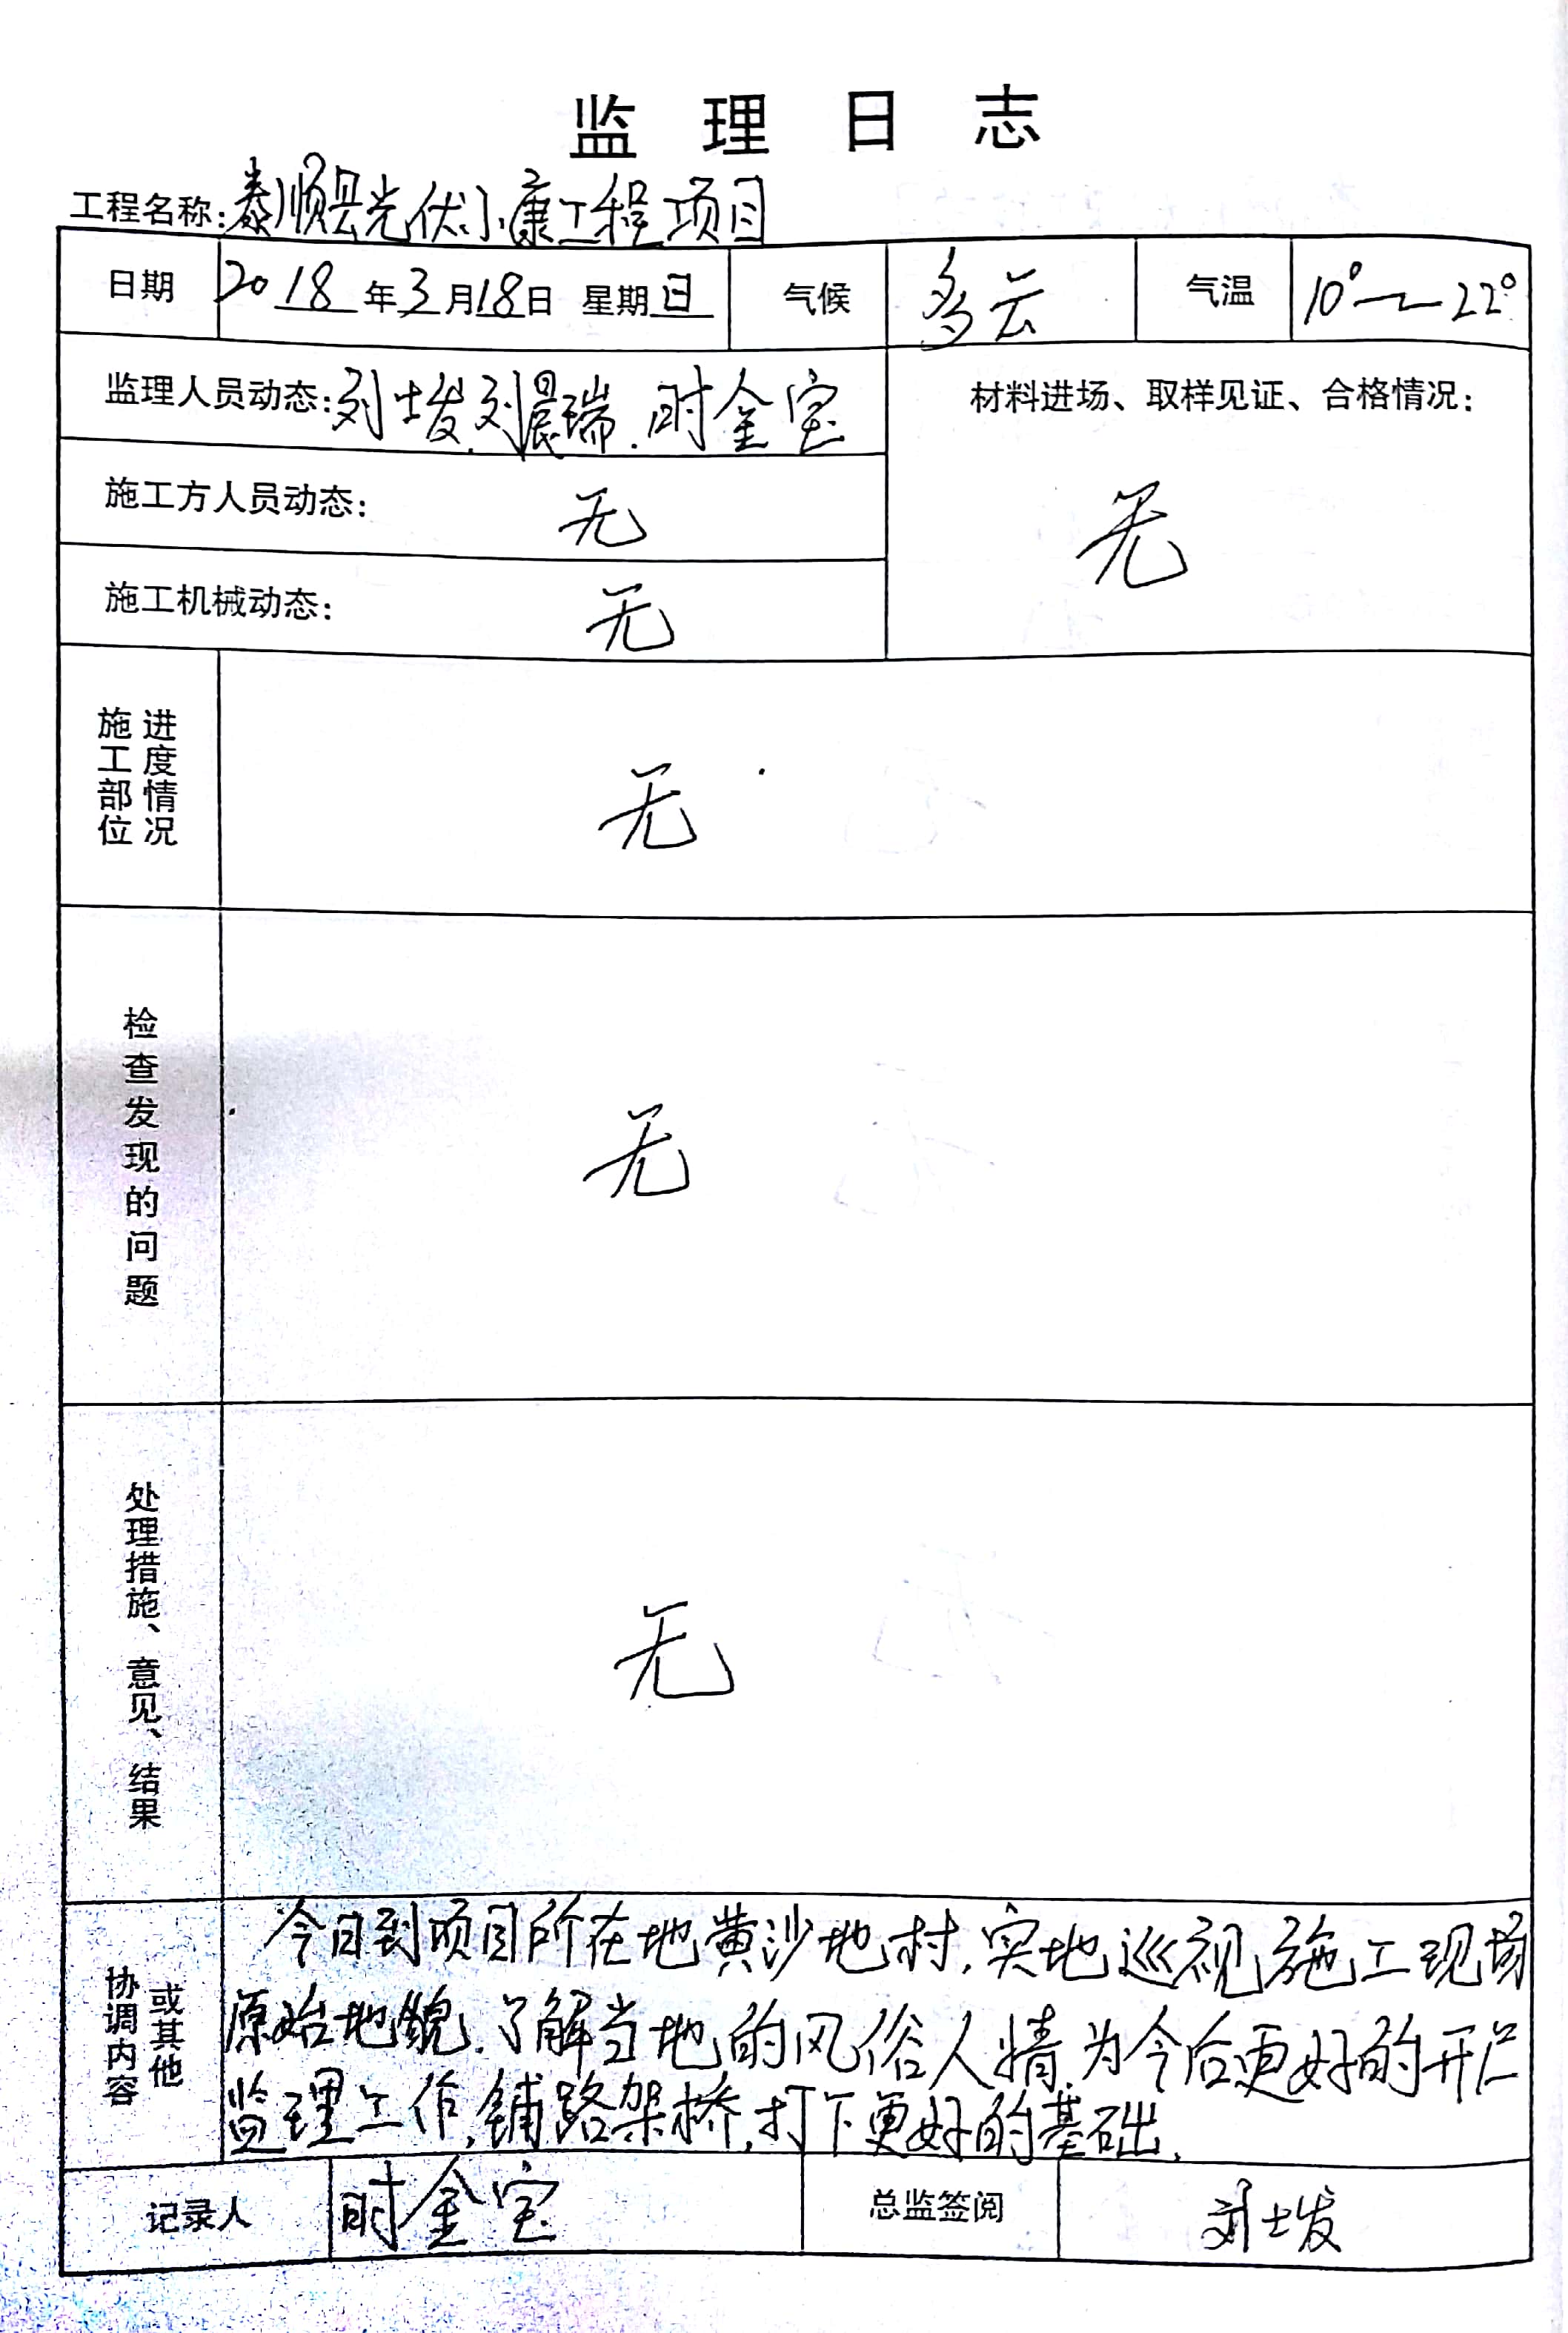 监理日志
工程名称:泰顺县光伏小康工程项目
日期 2018年3月18日 星期日 气候 多云 气温 10°~22°
监理人员动态:刘士发,刘晨瑞.时金宝 材料进场、取样见证、合格情况:
施工方人员动态: 无 无
施工机械动态: 无
施工部位 进度情况 无
检查发现的问题 无
处理措施、意见、结果 无
协调内容 或其他
今日到项目所在地黄沙地村,实地巡视施工现场
原始地貌.了解当地的风俗人情,为今后更好的开广
监理工作,铺路架桥,打下更好的基础.
记录人 时金宝 总监签阅 刘士发